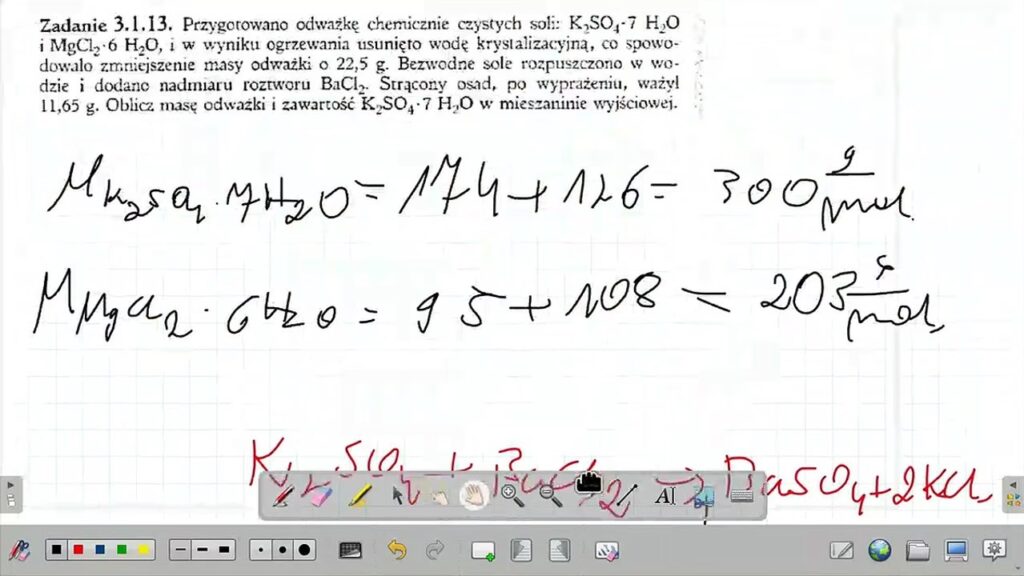 Zadanie 3.1.13. Przygotowano odważkę chemicznie czystych soli: K₂SO₄·7 H₂O
i MgCl₂·6 H₂O, i w wyniku ogrzewania usunięto wodę krystalizacyjną, co spowo-
dowało zmniejszenie masy odważki o 22,5 g. Bezwodne sole rozpuszczono w wo-
dzie i dodano nadmiaru roztworu BaCl₂. Strącony osad, po wyprażeniu, ważył
11,65 g. Oblicz masę odważki i zawartość K₂SO₄·7 H₂O w mieszaninie wyjściowej.
M K₂SO₄·7H₂O = 174 + 126 = 300 g/mol
M MgCl₂·6H₂O = 95 + 108 = 203 g/mol
K₂SO₄ + BaCl₂ → BaSO₄ + 2KCl
AI